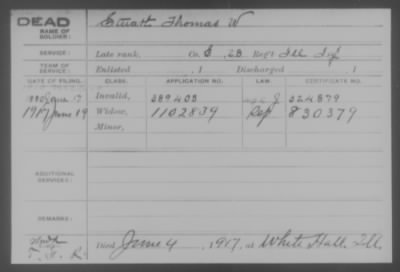 DEAD
NAME OF SOLDIER: Stuart Thomas W
SERVICE: Late rank, Co. G, 28 Reg't Ill Inf
TERM OF SERVICE: Enlisted , 1 Discharged 1
DATE OF FILING. CLASS. APPLICATION NO. LAW. CERTIFICATE NO.
1880 June 17 Invalid, 389403 324879
1917 June 19 Widow, 1102839 830379
Minor,
ADDITIONAL SERVICES:
REMARKS:
Died June 4, 1917, at White Hall Ill.